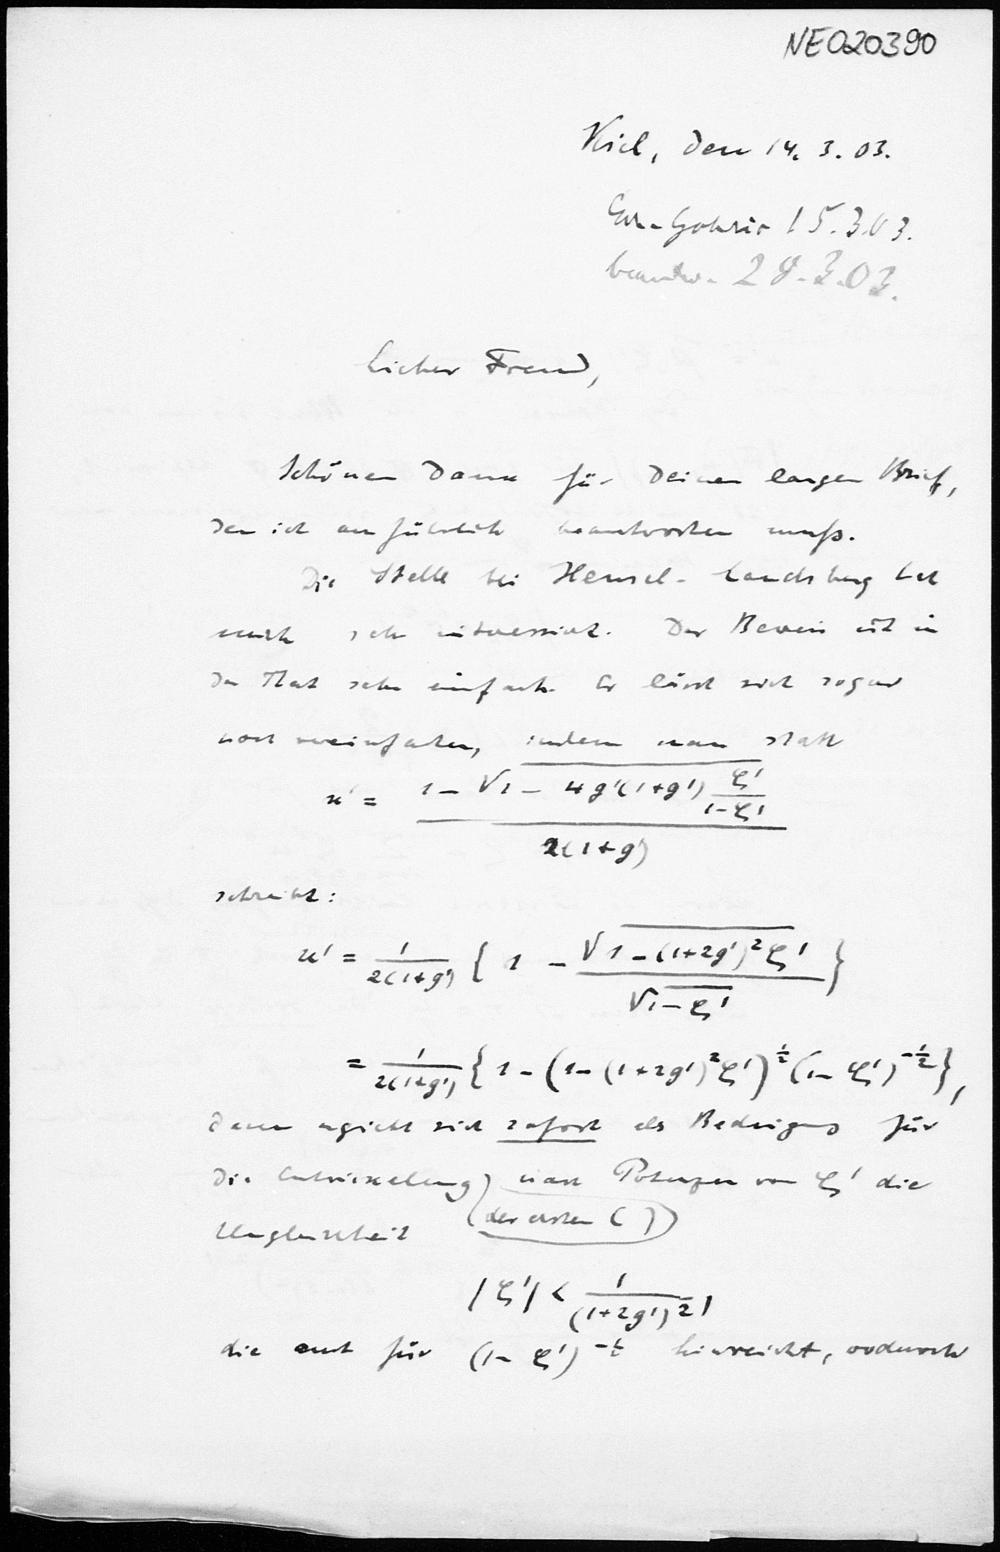 NE020390
Kiel, den 14. 3. 03.
15.3.03.
beantw. 28.3.03.
Lieber Freund,
Schönen Dank für Deinen langen Brief,
den ich ausführlich beantworten muß.
Die Stelle bei Hensel-Landsberg hat
mich sehr interessirt. Der Beweis ist in
der That sehr einfach. Er lässt sich sogar
noch vereinfachen, indem man statt
u' = \frac{1 - \sqrt{1 - 4g'(1+g') \frac{ζ'}{1-ζ'}}}{2(1+g')}
schreibt:
u' = \frac{1}{2(1+g')} { 1 - \frac{\sqrt{1-(1+2g')^2 ζ'}}{\sqrt{1-ζ'}} }
= \frac{1}{2(1+g')} { 1 - (1-(1+2g')^2 ζ')^{\frac{1}{2}} (1-ζ')^{-\frac{1}{2}} },
dann ergiebt sich sofort als Bedingung für
die Entwickelung nach Potenzen von ζ' die
(der ersten ( ))
Ungleichheit
|ζ'| < \frac{1}{|(1+2g')^2|}
die auch für (1-ζ')^{-\frac{1}{2}} hinreicht, wodurch